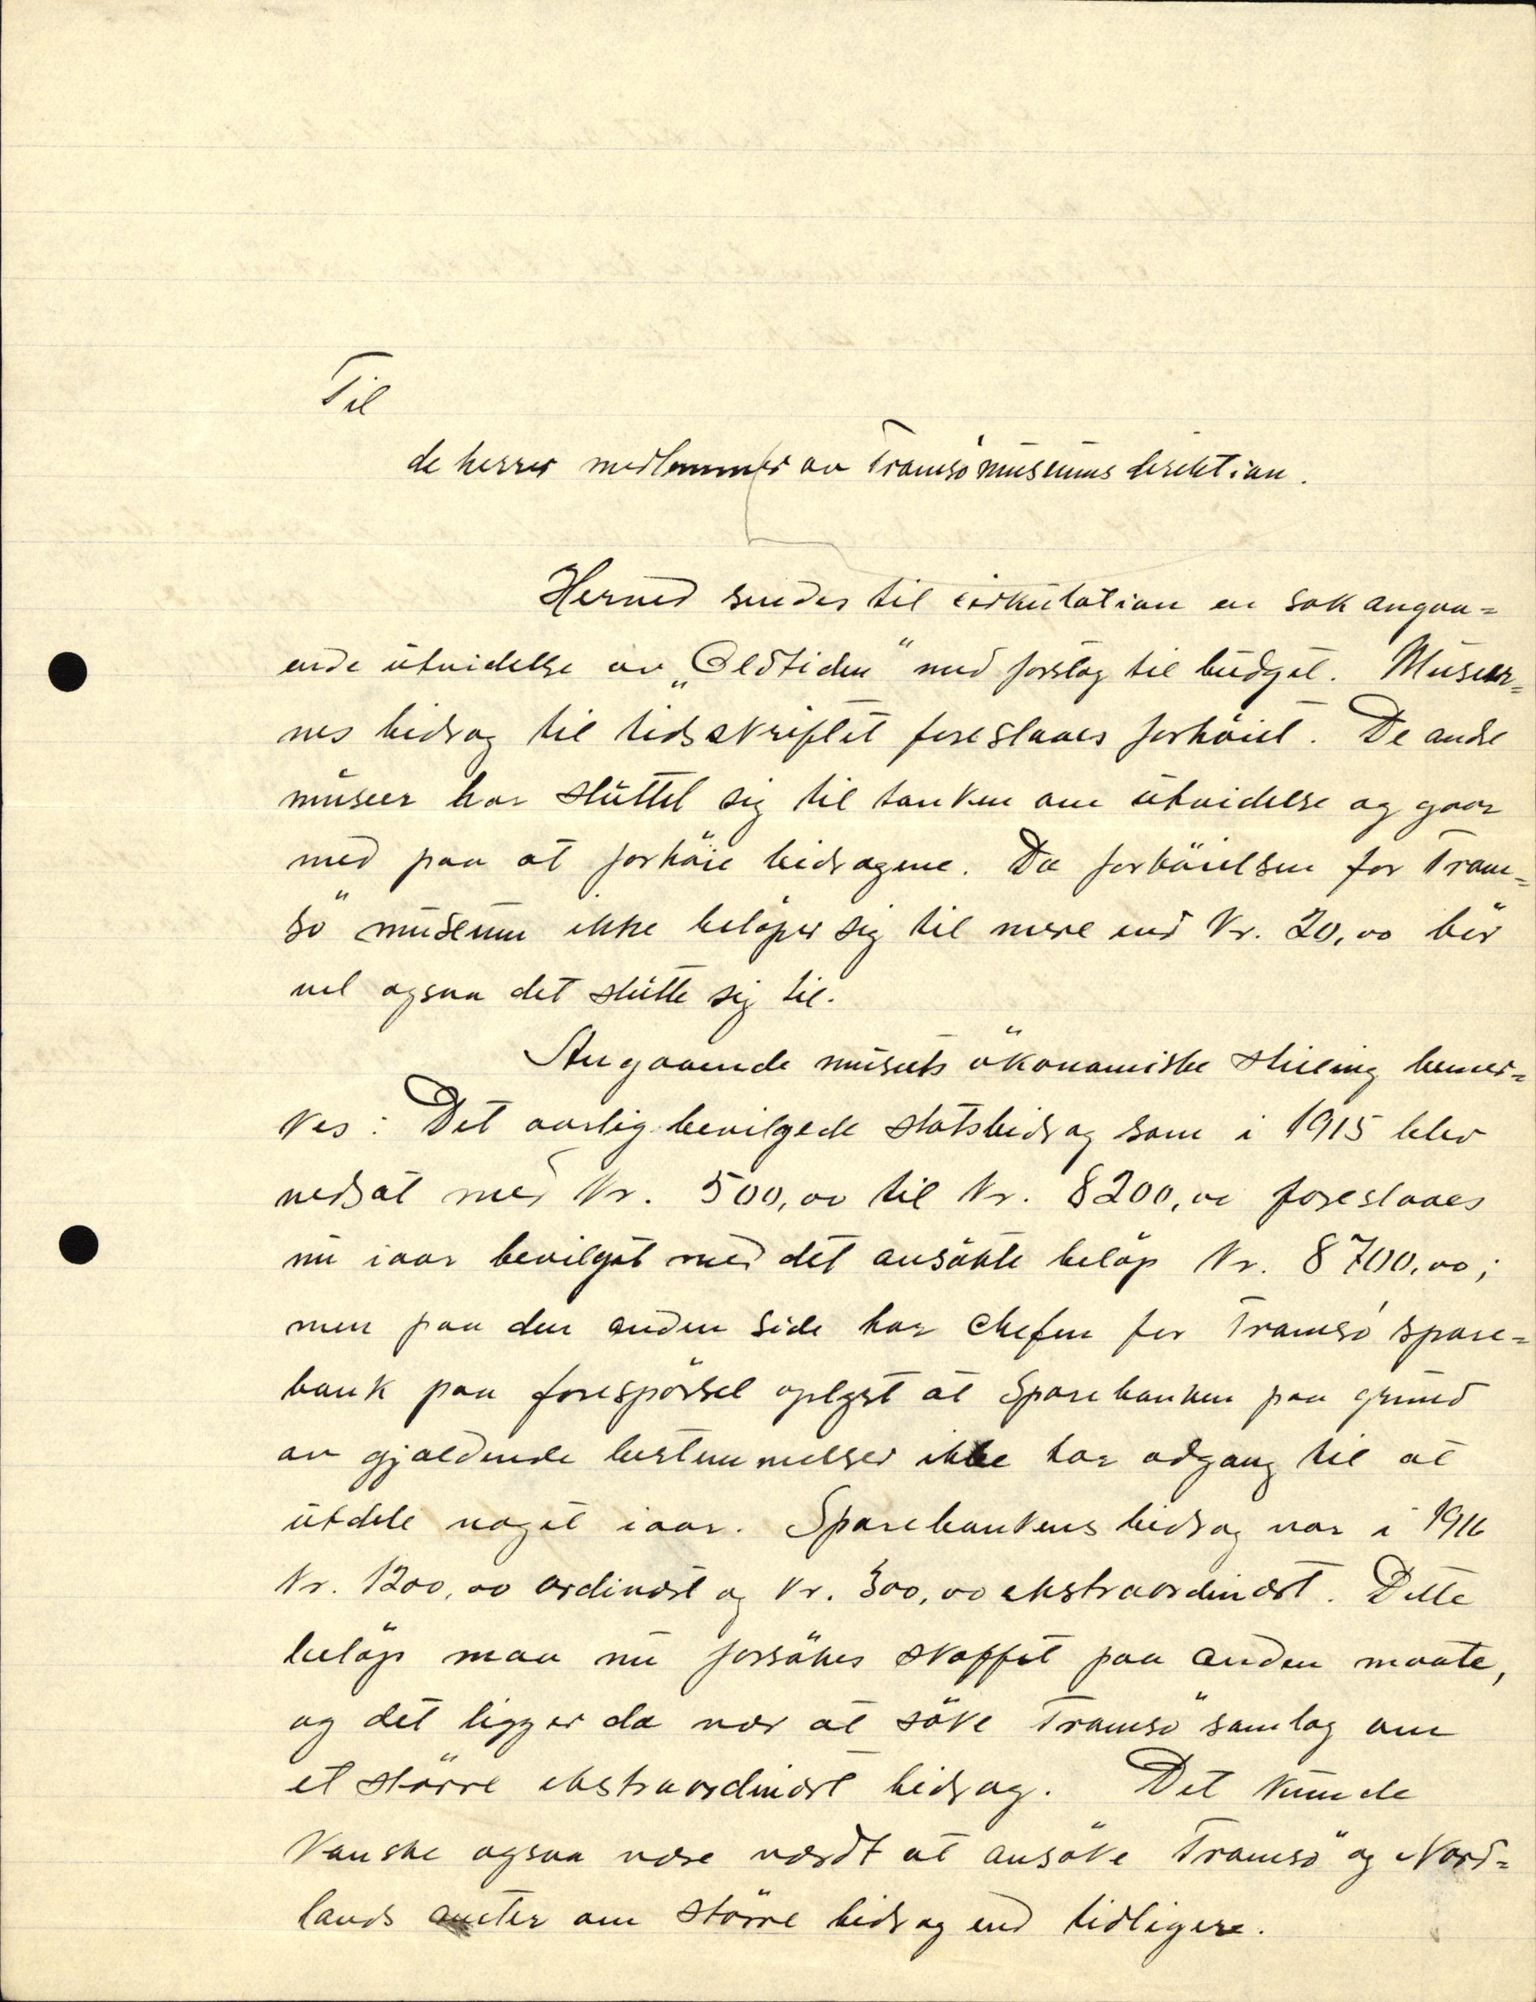 Til
de herrer medlemmer av Tromsö museums direktion.
Herved sendes til cirkulation en sak angaa-
ende utvidelse av „Oldtiden" med forslag til budget. Museer-
nes bidrag til tidsskriftet foreslaaes forhöiet. De andre
museer har sluttet sig til tanken om utvidelse og gaar
med paa at forhöie bidragene. Da forhöielsen for Trom-
sö museum ikke belöper sig til mere end Kr. 20,00 bör
vel ogsaa det slutte sig til.
Angaaende museets ökonomiske stilling bemer-
kes: Det aarlig bevilgede statsbidrag som i 1915 blev
nedsat med Kr. 500,00 til Kr. 8200,00 foreslaaes
nu iaar bevilget med det ansökte belöp Kr. 8700,00;
men paa den anden side har chefen for Tromsö spare-
bank paa forespörsel oplyst at Sparebanken paa grund
av gjældende bestemmelser ikke har adgang til at
utdele noget iaar. Sparebankens bidrag var i 1916
Kr. 1200,00 ordinært og Kr. 300,00 ekstraordinært. Dette
belöp maa nu forsökes skaffet paa anden maate,
og det ligger da nær at söke Tromsö samlag om
et större ekstraordinært bidrag. Det kunde
kanske ogsaa være værdt at ansöke Tromsö og Nord-
lands amter om större bidrag end tidligere.